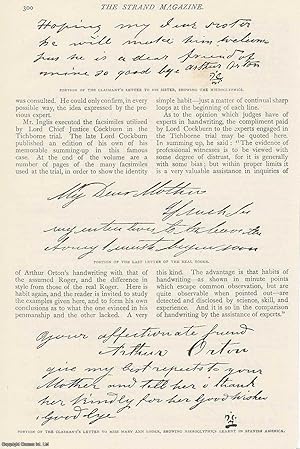 300
THE STRAND MAGAZINE.
Hoping my Dear sister
he will make him welcom
has he is a dear friend of
mine so good bye Arthur Orton
PORTION OF THE CLAIMANT'S LETTER TO HIS SISTER, SHOWING THE HIEROGLYPHICS.
was consulted. He could only confirm, in every
possible way, the idea expressed by the pre-
vious expert.
Mr. Inglis executed the facsimiles utilised
by Lord Chief Justice Cockburn in the
Tichborne trial. The late Lord Cockburn
published an edition of his own of his
memorable summing-up in this famous
case. At the end of the volume are a
number of pages of the many facsimiles
used at the trial, in order to show the identity
simple habit—just a matter of continual sharp
practice from the beginning of each week.
As to the opinion which judges have of
experts in handwriting, the compliment paid
by Lord Cockburn to the experts engaged in
the Tichborne trial may be quoted here.
In summing up, he said: "The evidence of
professional witnesses is to be viewed with
some degree of distrust, for it is generally
with some bias; but within proper limits it
is a very valuable assistance in inquiries of
My Dear Mother
PORTION OF THE LAST LETTER OF THE REAL ROGER.
of Arthur Orton's handwriting with that
of the assumed Roger, and the difference in
style from those of the real Roger. Here in
habit again, and the reader is invited to study
the examples given here, and to form his own
conclusions as to what the one evinced in his
penmanship and the other lacked. A very
this kind. The advantage is that habits of
handwriting—as shown in minute points
which escape common observation, but are
quite observable when pointed out—are
detected and disclosed by science, skill, and
experience. And it is so in the comparison
of handwriting by the assistance of experts."
your affectionate friend
Arthur Orton
give my best respects to your
Mother and tell her I thank
her kindly for her good wishes
Good bye
PORTION OF THE CLAIMANT'S LETTER TO MISS MARY ANN LODER, SHOWING HIEROGLYPHICS LEARNT IN SPANISH AMERICA.